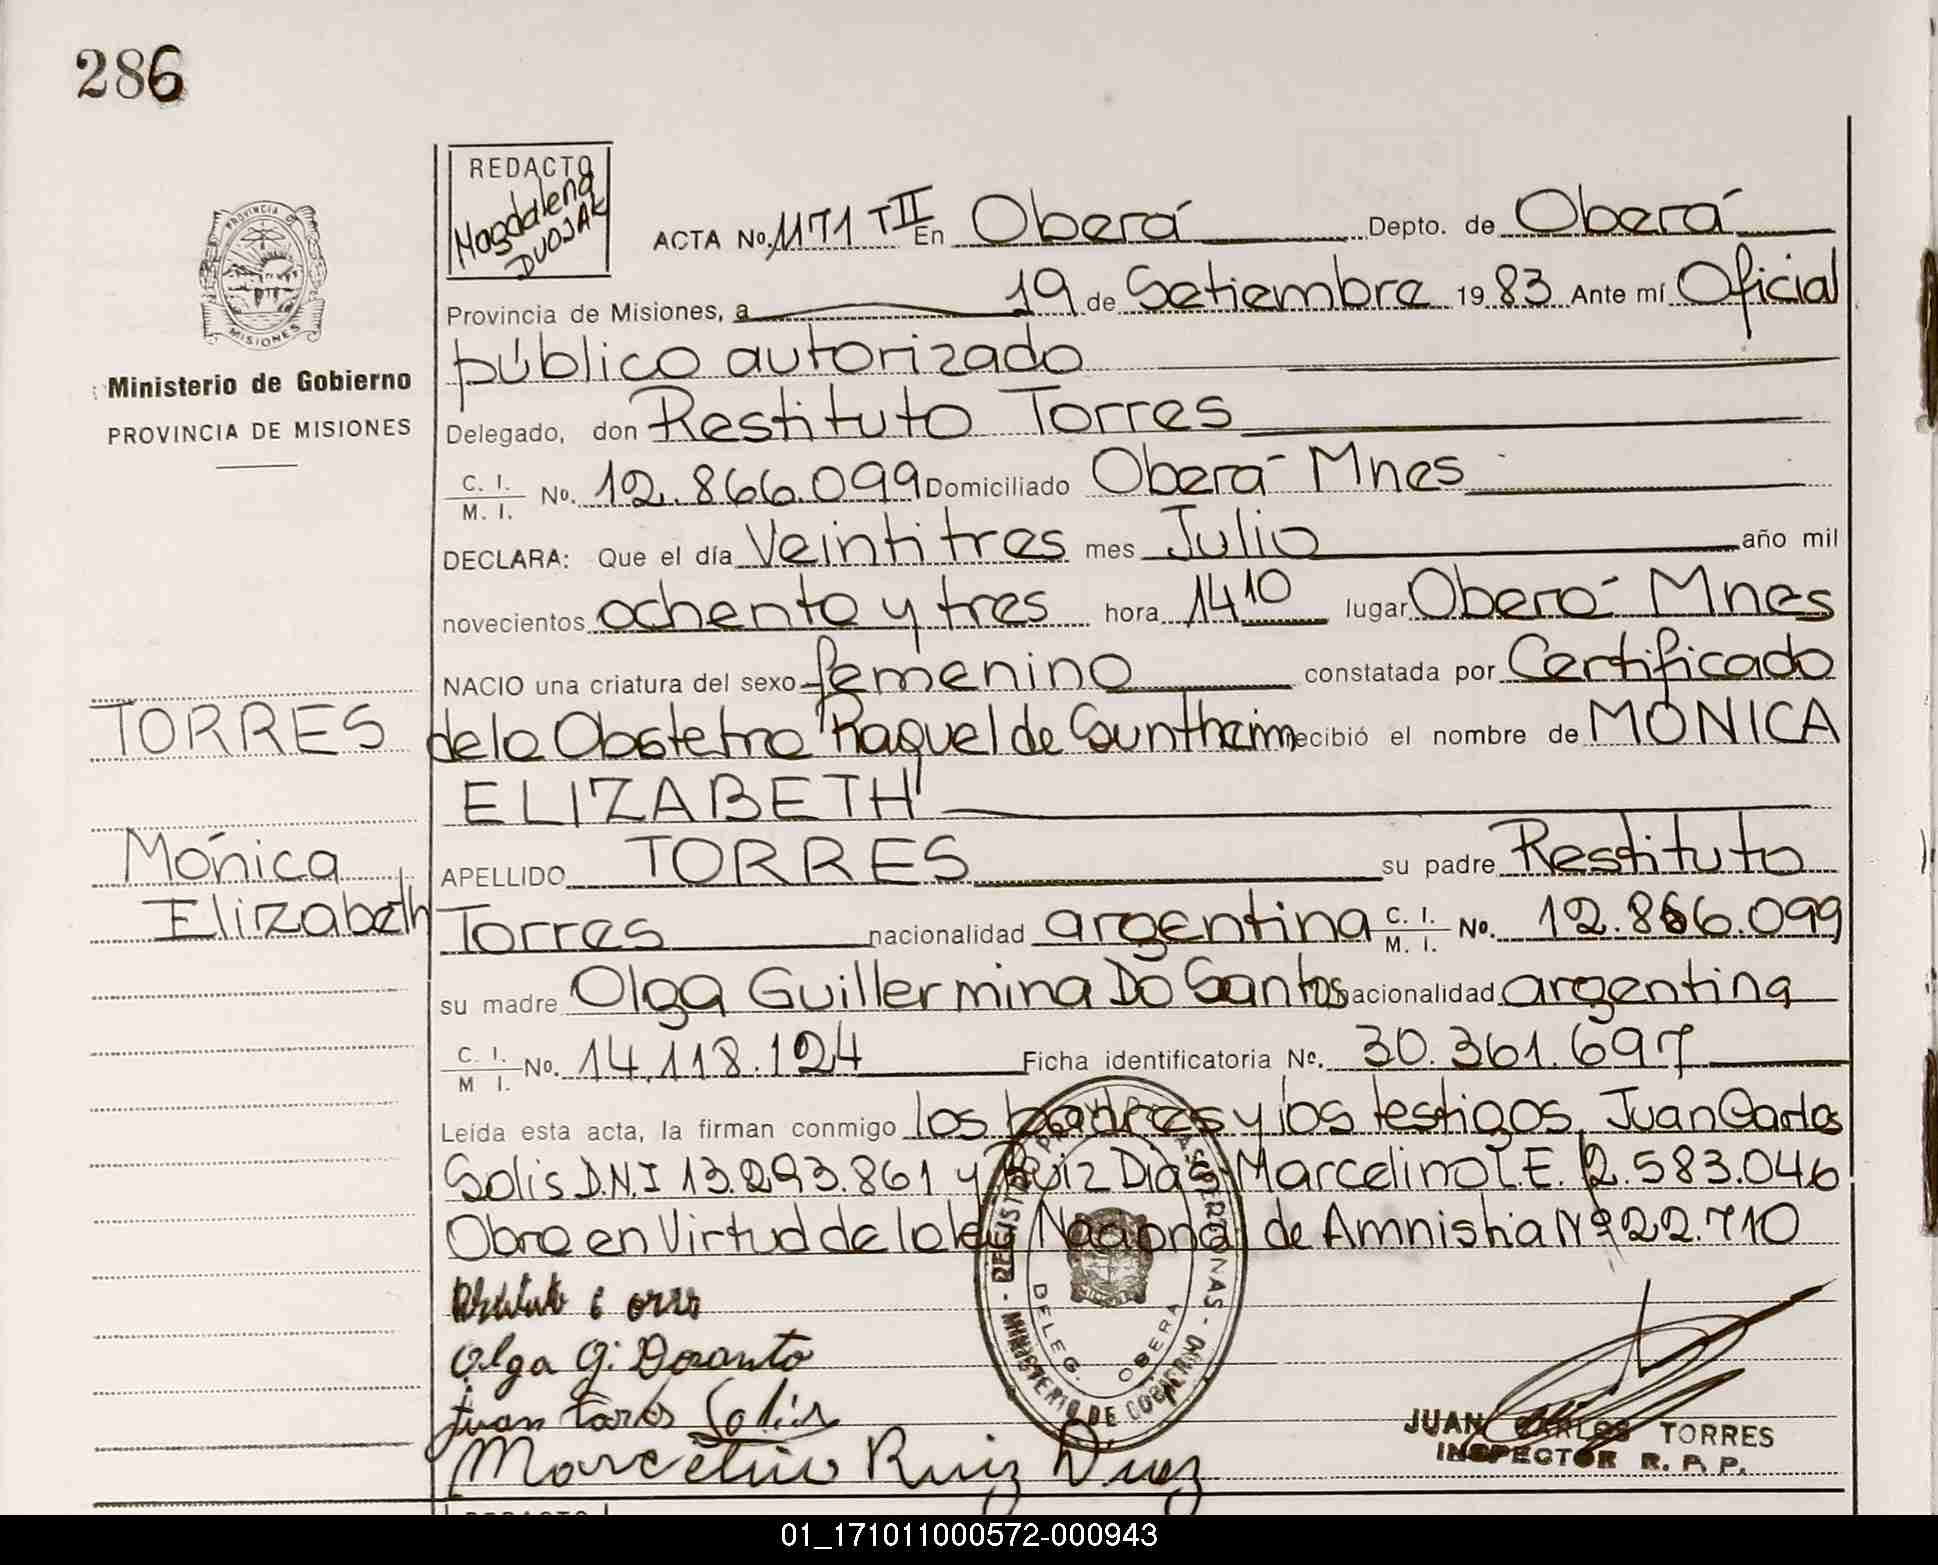 286
REDACTO
Magdalena
DUOJAK
ACTA No. 1171 TII En Oberá Depto. de Oberá
Provincia de Misiones, a 19 de Setiembre 1983 Ante mí Oficial
público autorizado
Delegado, don Restituto Torres
C. I. / M. I. No. 12.866.099 Domiciliado Oberá Mnes
DECLARA: Que el día Veintitres mes Julio año mil
novecientos ochenta y tres hora 14 10 lugar Oberá Mnes
NACIO una criatura del sexo femenino constatada por Certificado
de la Obstetra Raquel de Sountheim recibió el nombre de MÓNICA
ELIZABETH
APELLIDO TORRES su padre Restituto
Torres nacionalidad argentina C. I. / M. I. No. 12.866.099
su madre Olga Guillermina Do Santos nacionalidad argentina
C. I. / M I. No. 14.118.124 Ficha identificatoria No. 30.361.697
Leída esta acta, la firman conmigo los padres y los testigos, Juan Carlos
Solis D.N.I 13.293.861 y Ruiz Diás Marcelino L.E. 12.583.046
Obra en Virtud de la ley Nacional de Amnistia Nº 22.710
Olga G. Dosanto
Juan Carlos Solis
Marcelino Ruiz Diaz
PROVINCIA DE MISIONES
Ministerio de Gobierno
PROVINCIA DE MISIONES
TORRES
Mónica
Elizabeth
MINISTERIO DE GOBIERNO
DELEG. OBERA
JUAN CARLOS TORRES
INSPECTOR R. P. P.
REDACTO
01_171011000572-000943